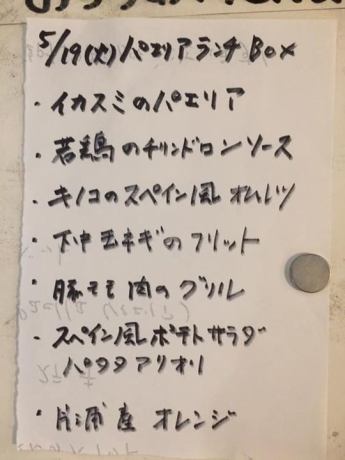 5/19(火)パエリアランチBox
・イカスミのパエリア
・若鶏のチリンドロンソース
・キノコのスペイン風オムレツ
・下中玉ネギのフリット
・豚モモ肉のグリル
・スペイン風ポテトサラダ
パタタアリオリ
・片浦産 オレンジ